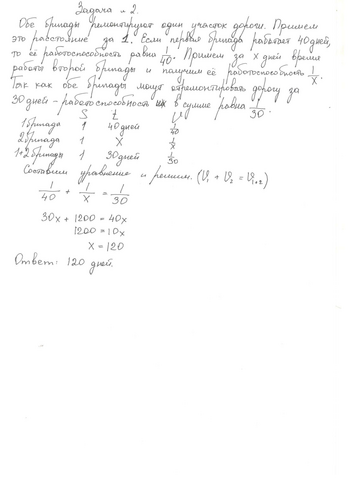 Задача № 2.
Обе бригады ремонтируют один участок дороги. Примем
это расстояние за 1. Если первая бригада работает 40 дней,
то её работоспособность равна 1/40. Примем за x дней время
работы второй бригады и получим её работоспособность 1/x.
Так как обе бригады могут отремонтировать дорогу за
30 дней – работоспособность их в сумме равна 1/30.
S t V
1 бригада 1 40 дней 1/40
2 бригада 1 X 1/x
1+2 бригады 1 30 дней 1/30
Составим уравнение и решим. (V₁ + V₂ = V₁₊₂)
1/40 + 1/x = 1/30
30x + 1200 = 40x
1200 = 10x
x = 120
Ответ: 120 дней.